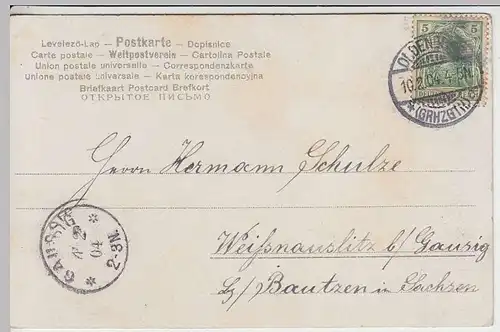 Levelező-Lap — Postkarte — Dopisnice
Carte postale — Weltpostverein — Cartolina Postale
Union postale universelle — Correspondenzkarte
Unione postale universale — Karta korespondencyjna
Briefkaart Postcard Brefkort
ОТКРЫТОЕ ПИСЬМО
5 5
10.2.04. 4-5N
*(GRHZGT)
Herrn Hermann Schulze
Weißnauslitz b/ Gaussig
b/ Bautzen in Sachsen
GAUSSIG
2
04
2-3N